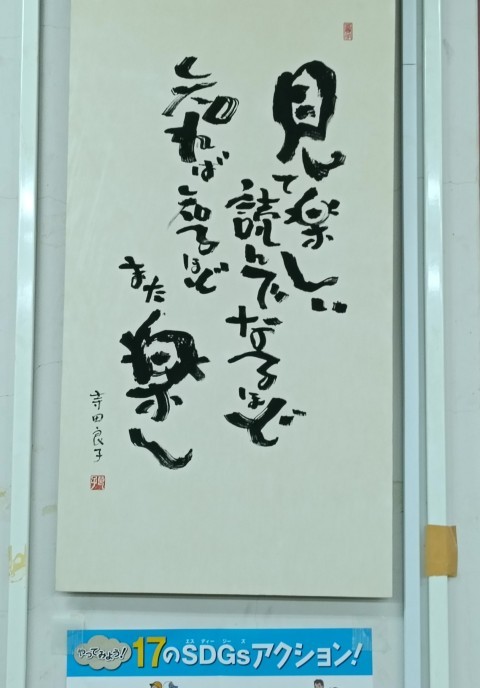 見て楽しい
読んでなるほど
知れば知るほど
また楽し
寺田良子
やってみよう!
エス ディー ジーズ
17のSDGsアクション!